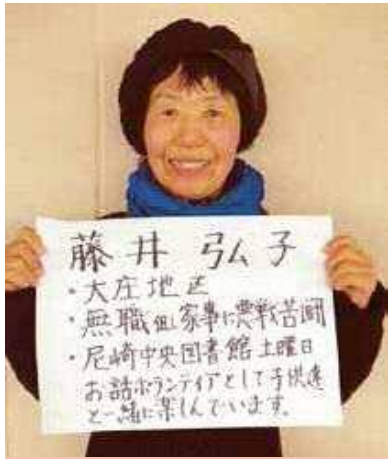 藤井 弘子
・大庄地区
・無職但し家事に悪戦苦闘
・尼崎中央図書館土曜日
お話ボランティアとして子供達
と一緒に楽しんでいます。